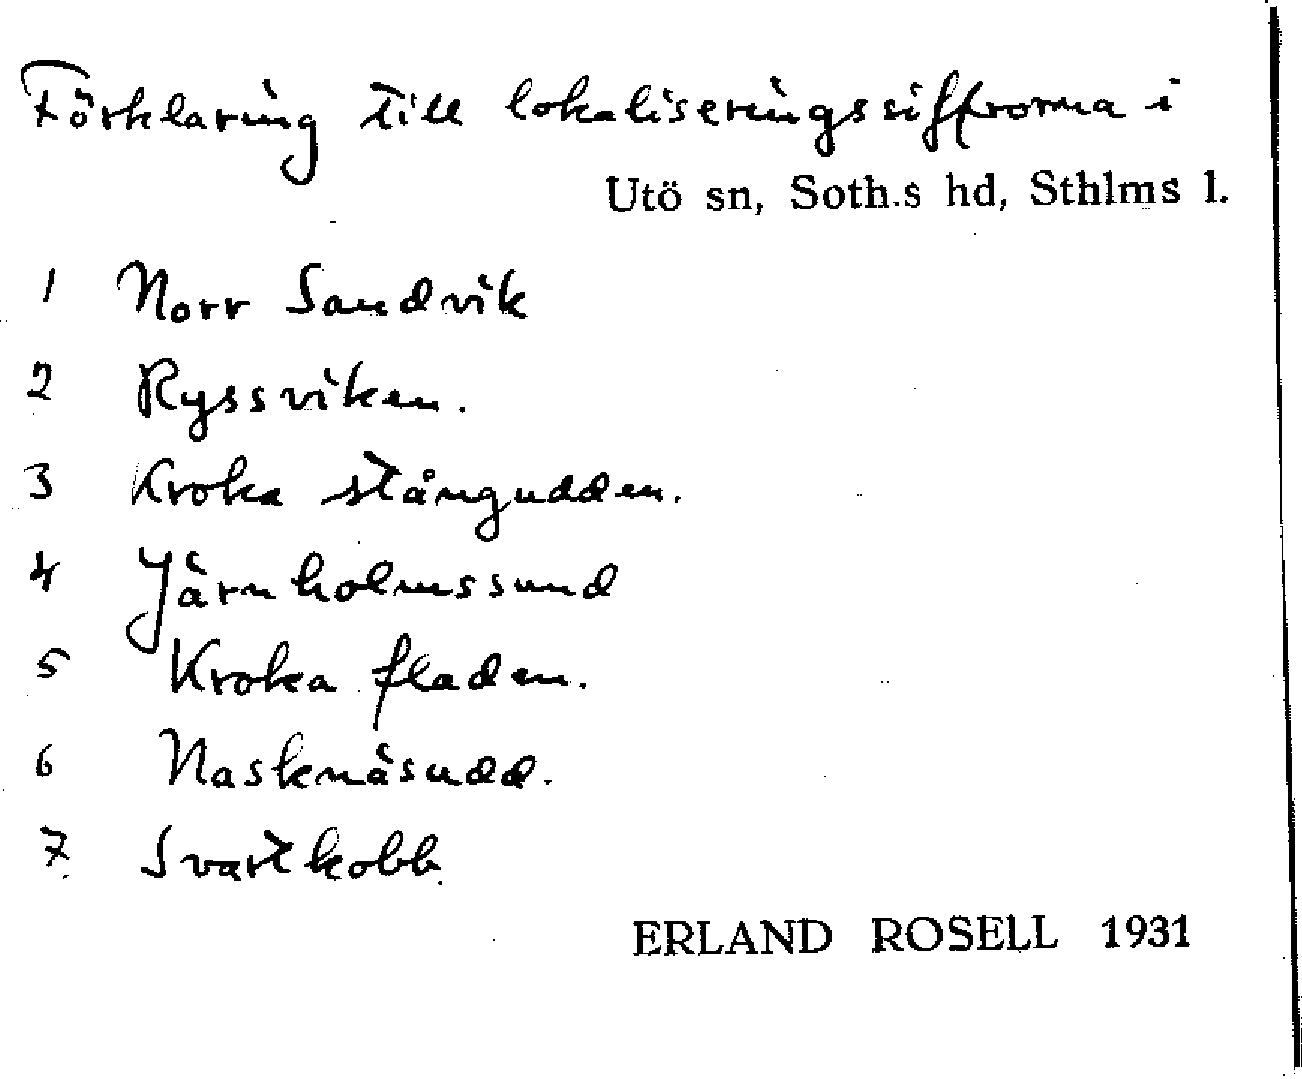 Förklaring till lokaliseringssiffrorna i
Utö sn, Soth.s hd, Sthlms l.
1 Norr Sandvik
2 Ryssviken.
3 Kroka stångudden.
4 Järnholmssund
5 Kroka fladen.
6 Nasknäsudd.
7 Svartkobb
ERLAND ROSELL 1931